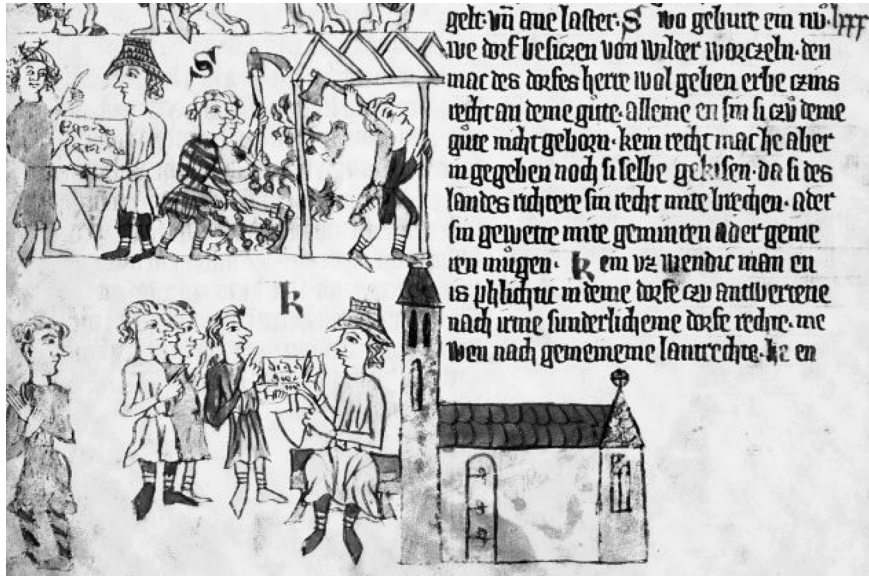 gelt· vn̄ ane laster· S wo gebure ein nu̍· lxxx
we dorf besiczen von wilder worczeln· den
mac des dorfes herre wol geben erbe czins
recht an deme gůte· alleine en sin si czů deme
gůte nicht geborn· kein recht mac he aber
in gegeben noch si selbe gekisen· da si des
landes richtere sin recht mite brechen· ader
sin gewette mite geminren ader geme
ren mugen· k ein vz wendic man en
is phlichtic in deme dorfe czu antwertene
nach irme sunderlicheme dorf rechte· me
wen nach gemeineme lantrechte· ez en
S
k